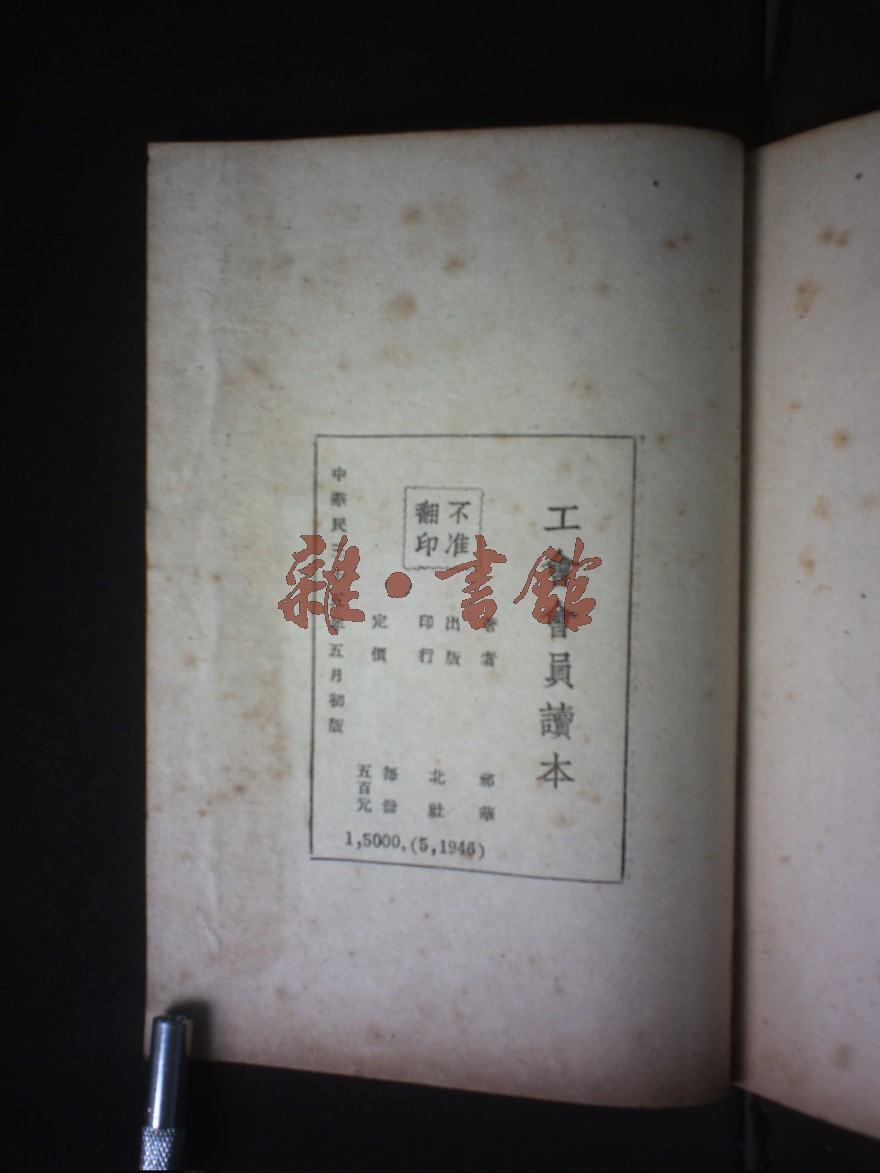 工會會員讀本
著者 華
出版
印行 北社
不准
翻印
定價 每册
五百元
中華民國三十五年五月初版
1,5000.(5,1946)
雜·書館